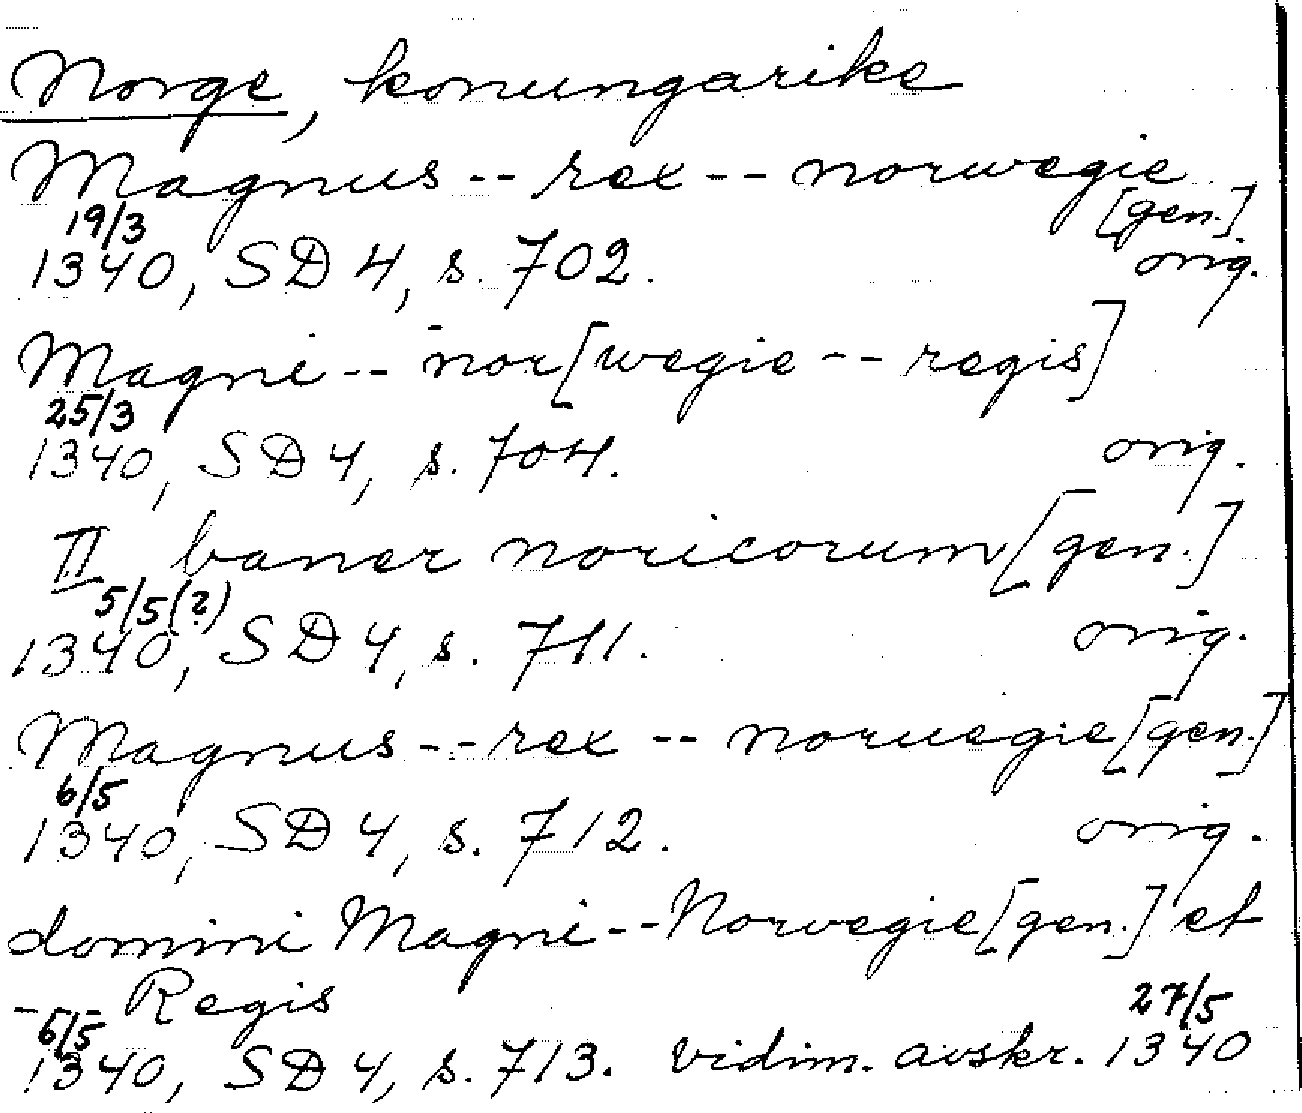 Norge, konungarike
Magnus -- rex -- norwegie
[gen.]
19/3
1340, SD 4, s. 702. orig.
Magni -- nor[wegie -- regis]
25/3
1340, SD 4, s. 704. orig.
II baner noricorum [gen.]
5/5(?)
1340, SD 4, s. 711. orig.
Magnus -- rex -- noruegie [gen.]
6/5
1340, SD 4, s. 712. orig.
domini Magni -- Norvegie [gen.] et
-- Regis
6/5 27/5
1340, SD 4, s. 713. vidim. avskr. 1340